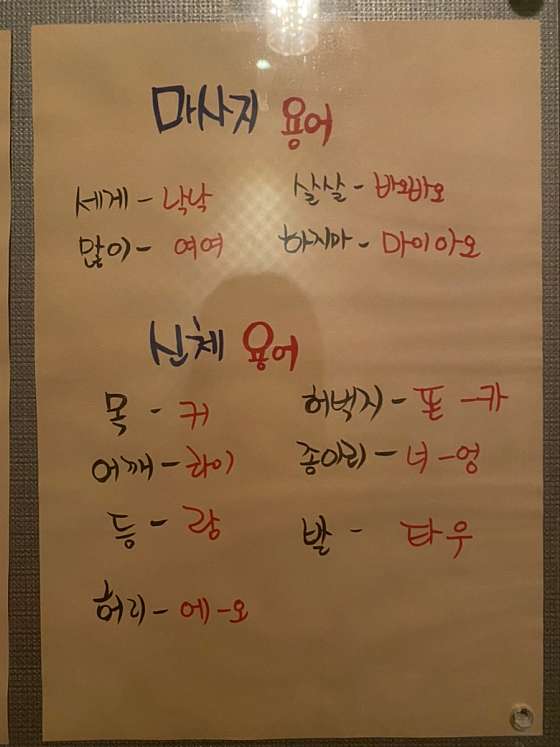 마사지 용어
세게 - 낙낙 살살 - 바오바오
많이 - 여여 하지마 - 마이아오
신체 용어
목 - 커 허벅지 - 톤 - 카
어깨 - 하이 종아리 - 너 - 엉
등 - 랑 발 - 타우
허리 - 에 - 오